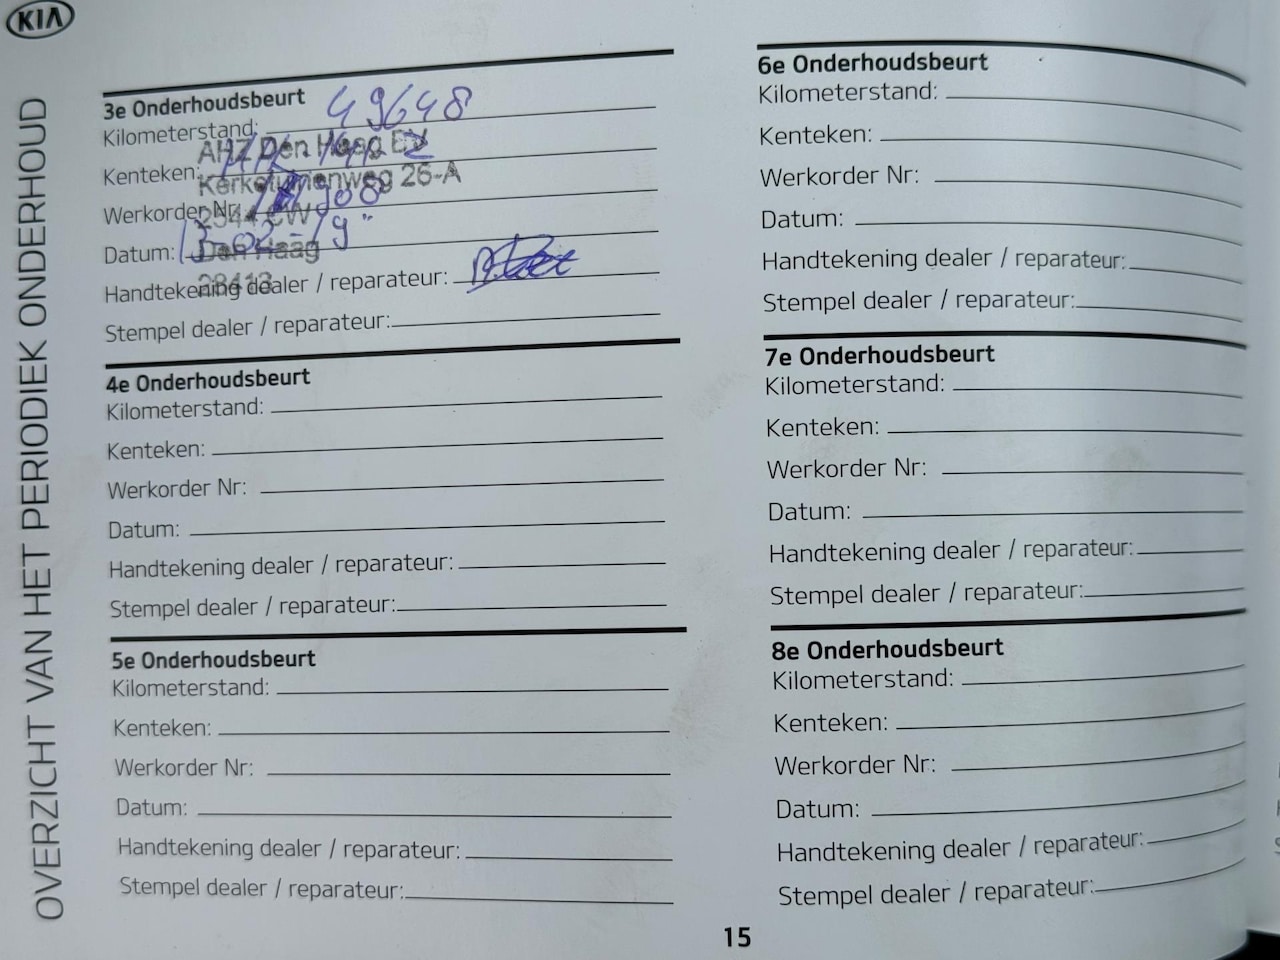 KIA
OVERZICHT VAN HET PERIODIEK ONDERHOUD
3e Onderhoudsbeurt
Kilometerstand: 49648
AHZ Den Haag BV
Kenteken:
Kerketuinenweg 26-A
Werkorder Nr:
2544 CW
Datum: 13-02-19"
Den Haag
28413
Handtekening dealer / reparateur:
Stempel dealer / reparateur:
4e Onderhoudsbeurt
Kilometerstand:
Kenteken:
Werkorder Nr:
Datum:
Handtekening dealer / reparateur:
Stempel dealer / reparateur:
5e Onderhoudsbeurt
Kilometerstand:
Kenteken:
Werkorder Nr:
Datum:
Handtekening dealer / reparateur:
Stempel dealer / reparateur:
6e Onderhoudsbeurt
Kilometerstand:
Kenteken:
Werkorder Nr:
Datum:
Handtekening dealer / reparateur:
Stempel dealer / reparateur:
7e Onderhoudsbeurt
Kilometerstand:
Kenteken:
Werkorder Nr:
Datum:
Handtekening dealer / reparateur:
Stempel dealer / reparateur:
8e Onderhoudsbeurt
Kilometerstand:
Kenteken:
Werkorder Nr:
Datum:
Handtekening dealer / reparateur:
Stempel dealer / reparateur:
15